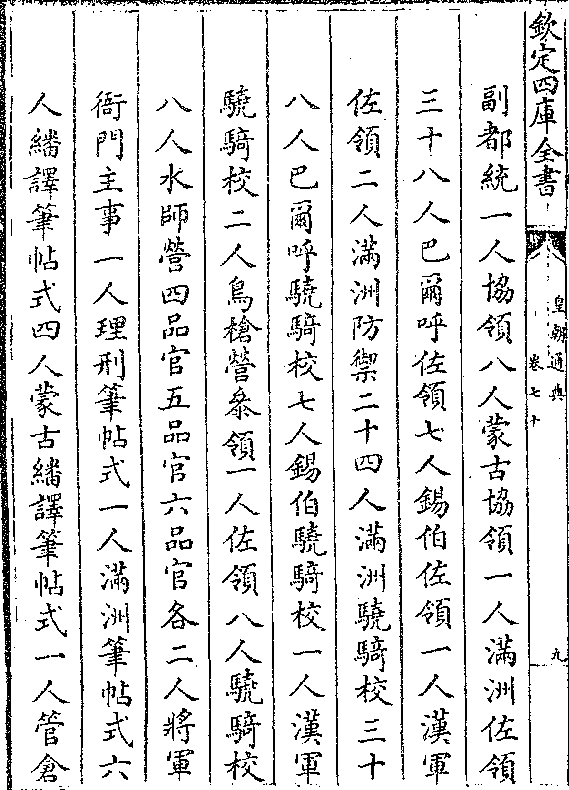 欽定四庫全書
皇朝通典
卷七十
九
副都統一人協領八人蒙古協領一人滿洲佐領
三十八人巴爾呼佐領七人錫伯佐領一人漢軍
佐領二人滿洲防禦二十四人滿洲驍騎校三十
八人巴爾呼驍騎校七人錫伯驍騎校一人漢軍
驍騎校二人鳥槍營叅領一人佐領八人驍騎校
八人水師營四品官五品官六品官各二人將軍
衙門主事一人理刑筆帖式一人滿洲筆帖式六
人繙譯筆帖式四人蒙古繙譯筆帖式一人管倉